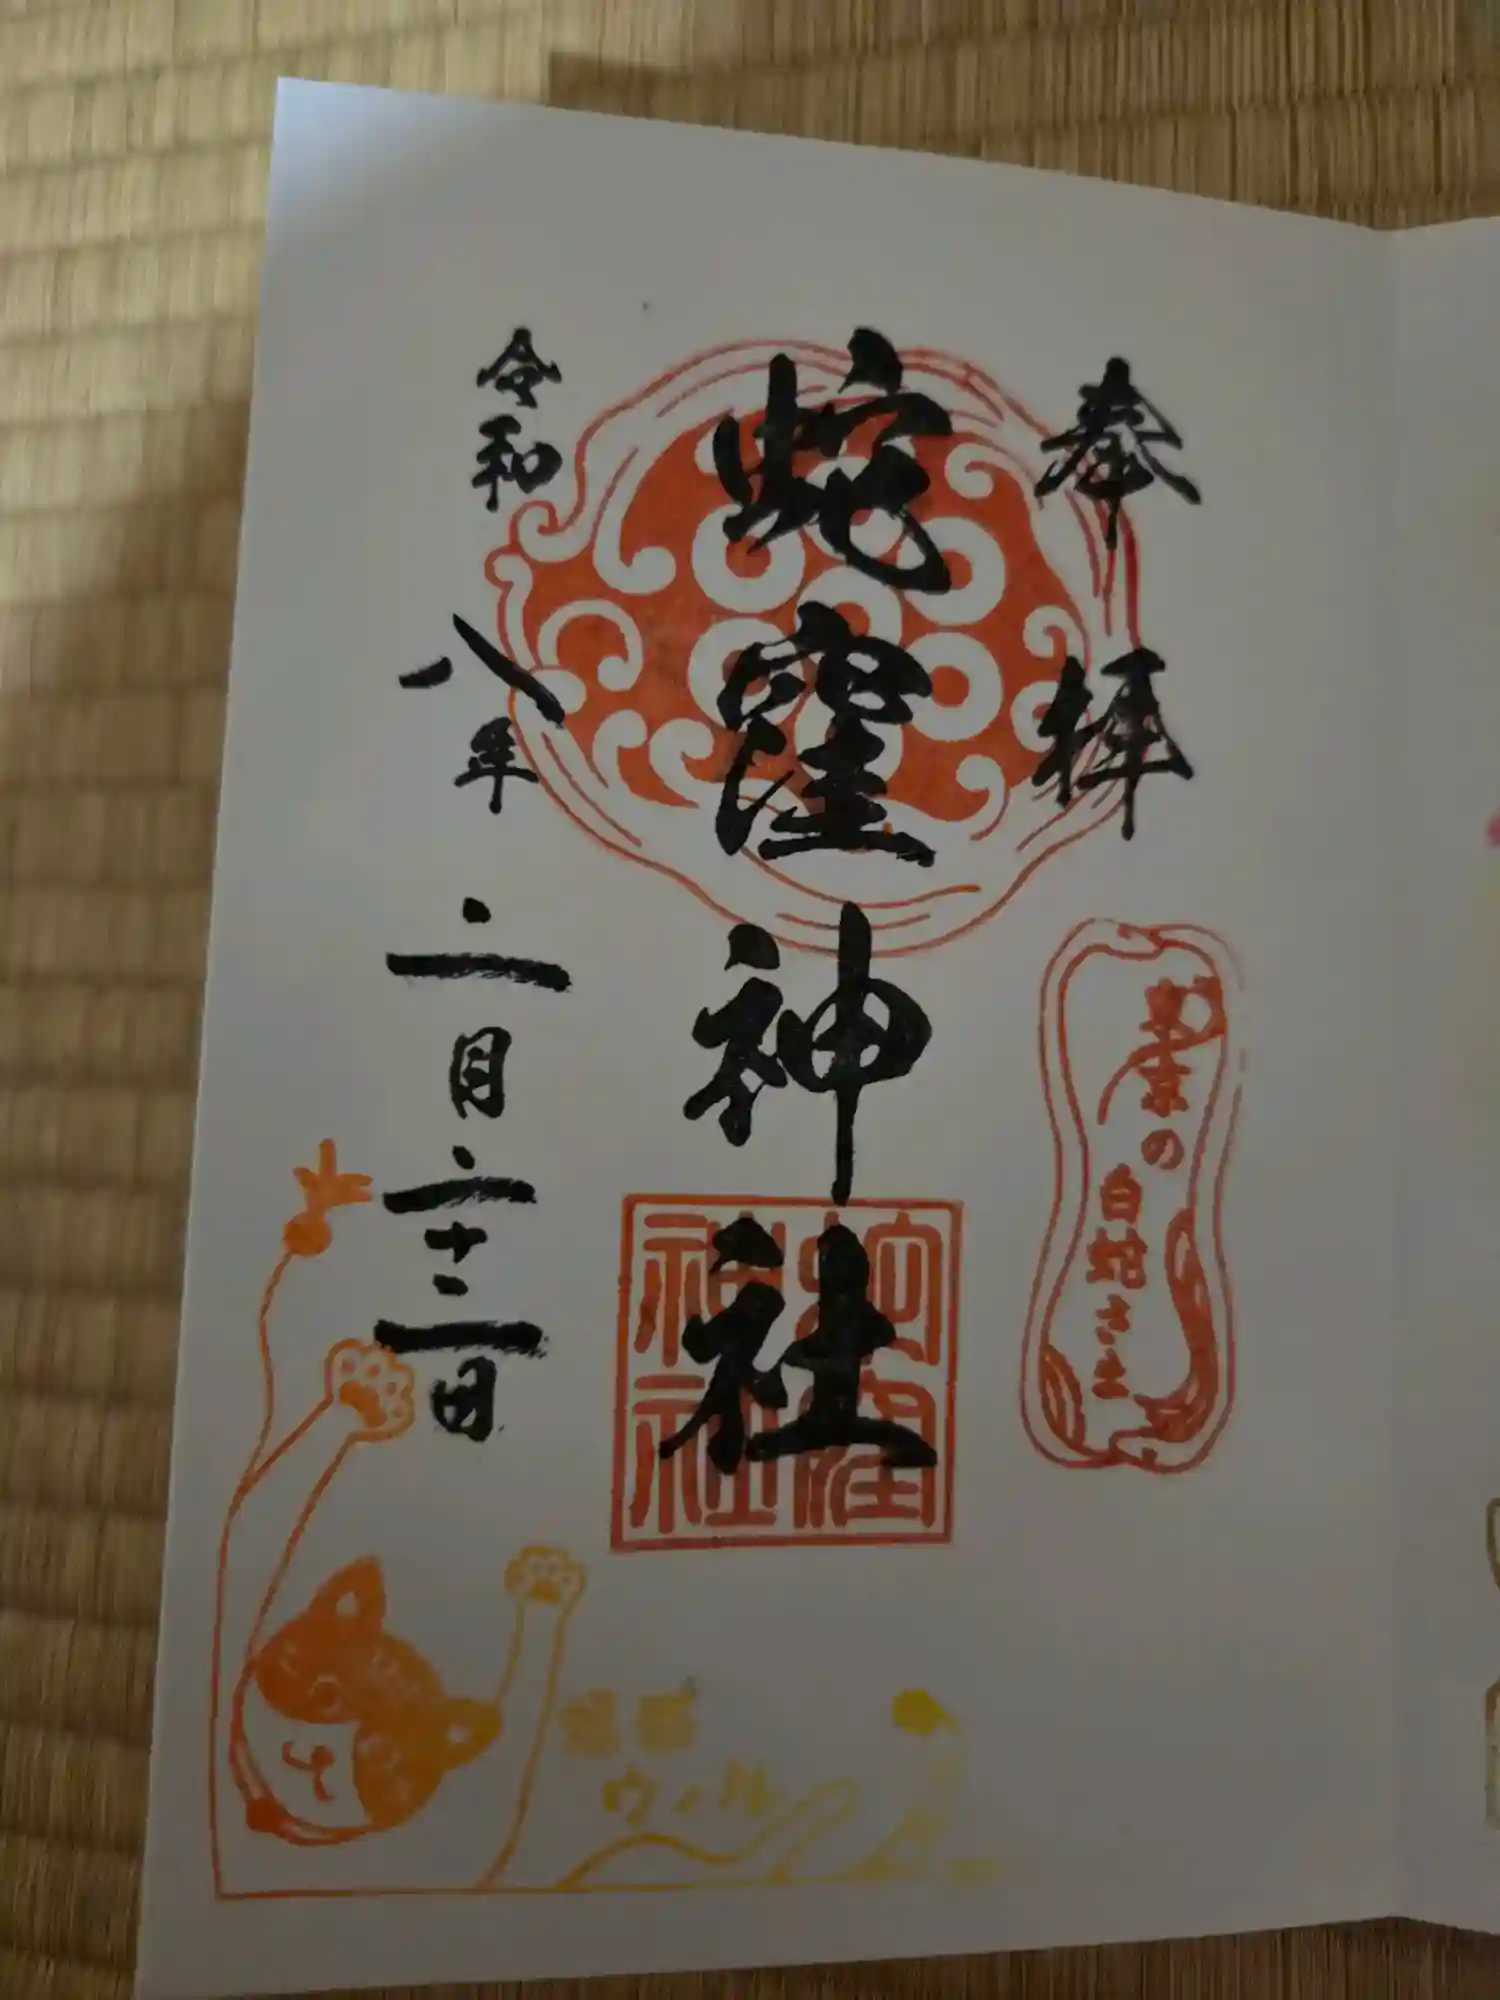 奉拝
蛇窪神社
東京の
白蛇さま
蛇窪
神社
令和八年二月二十二日